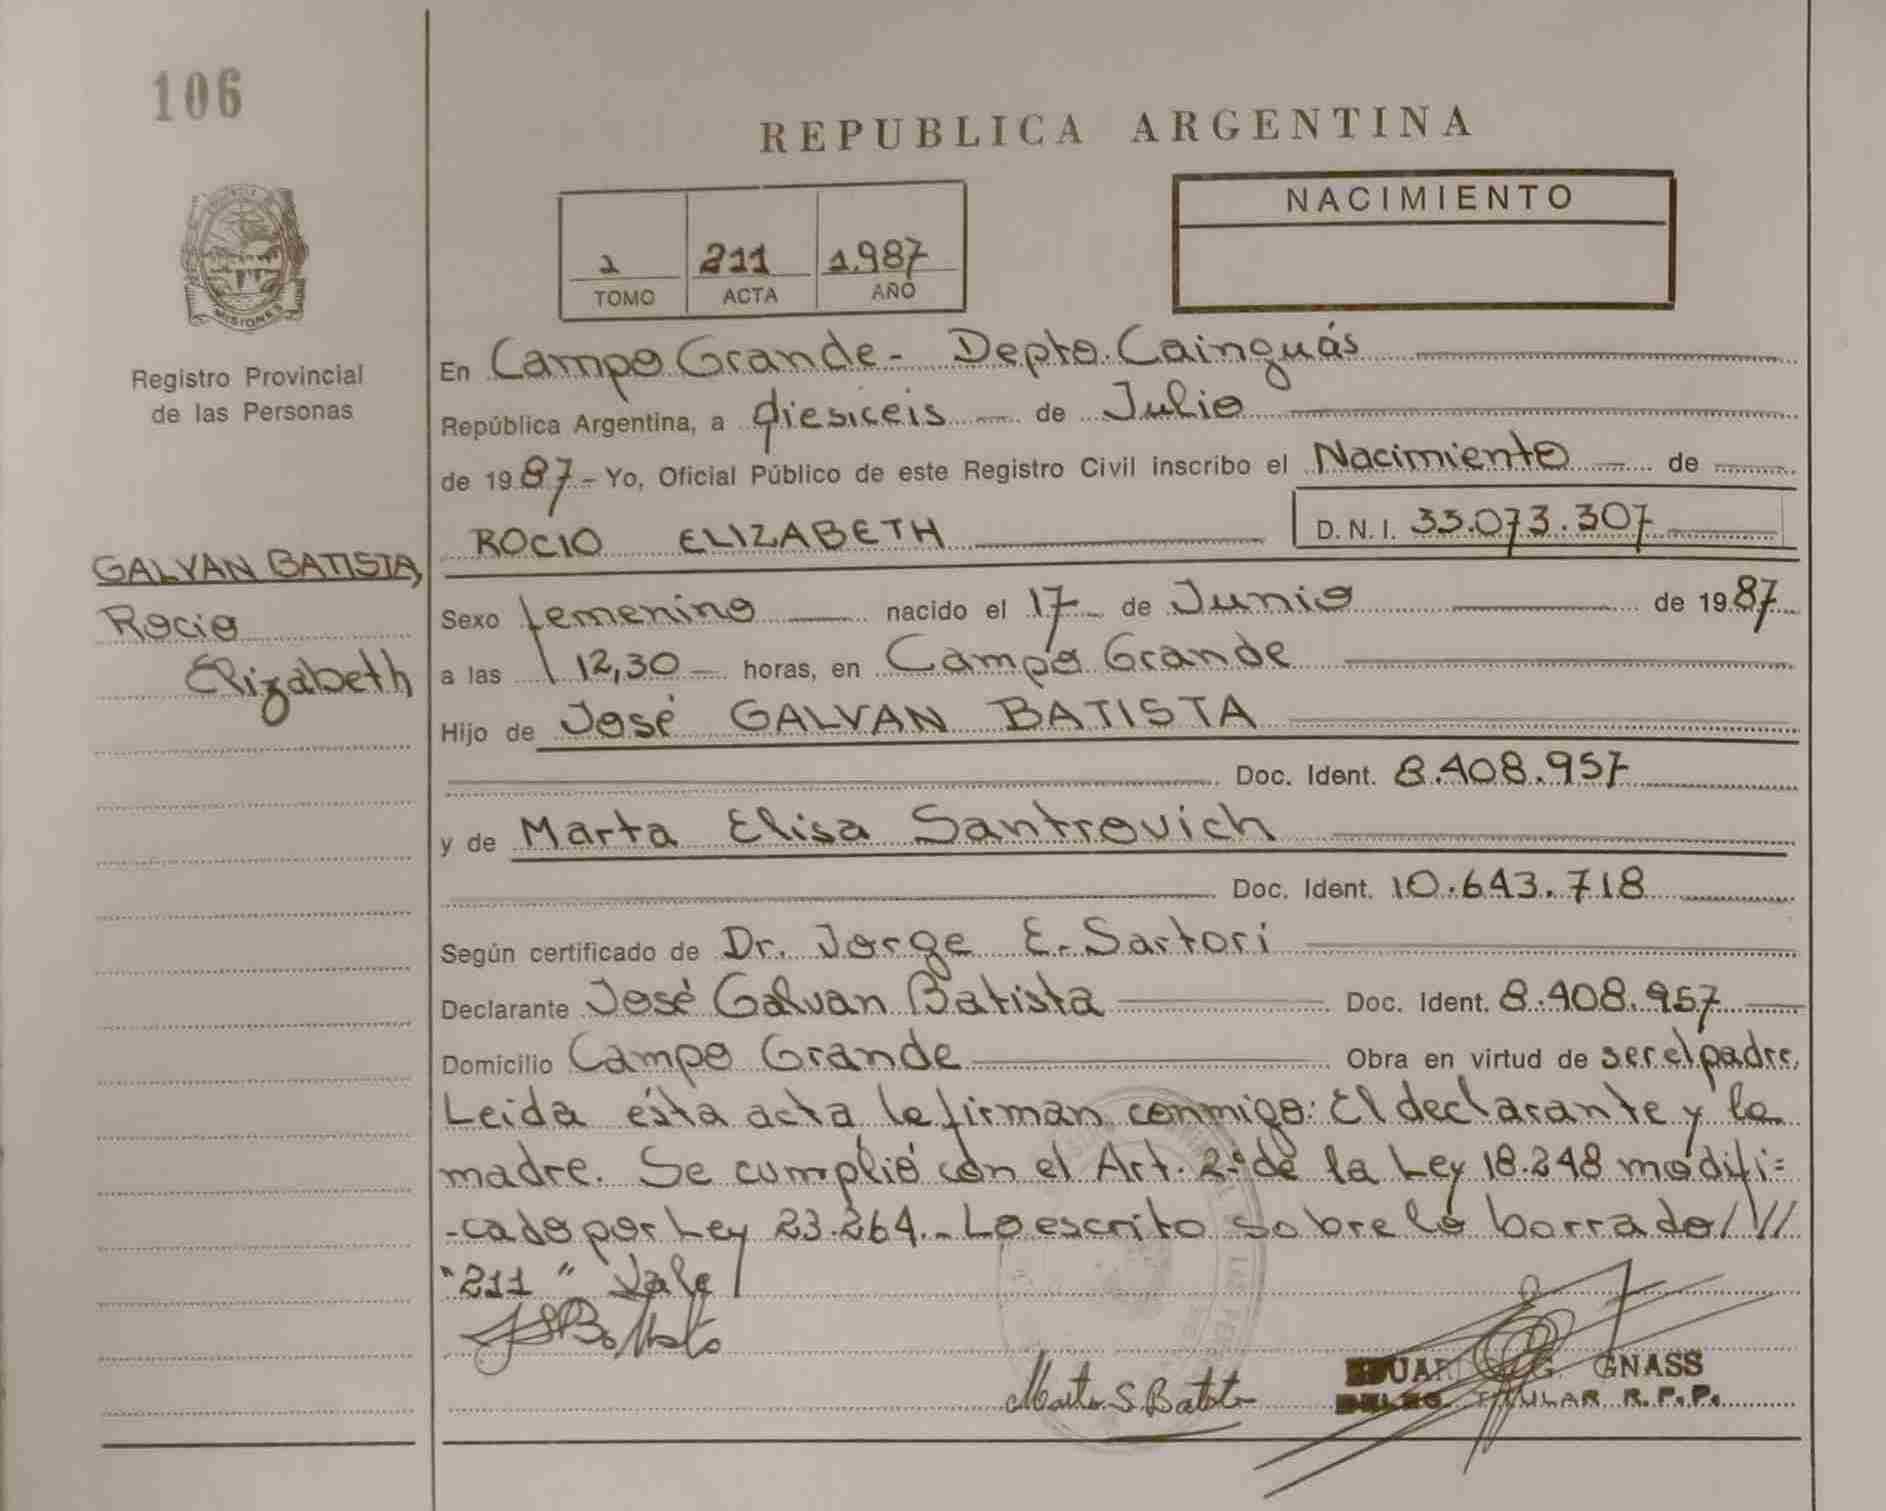 106
REPUBLICA ARGENTINA
NACIMIENTO
1 211 1.987
TOMO ACTA AÑO
MISIONES
Registro Provincial
de las Personas
En Campo Grande - Depto. Cainguás
República Argentina, a diesiceis de Julio
de 1987 - Yo, Oficial Público de este Registro Civil inscribo el Nacimiento de
ROCIO ELIZABETH D.N.I. 33.073.307
GALVAN BATISTA,
Rocio
Elizabeth
Sexo femenino nacido el 17 de Junio de 1987
a las 12,30 horas, en Campo Grande
Hijo de José GALVAN BATISTA
Doc. Ident. 8.408.957
y de Marta Elisa Santrovich
Doc. Ident. 10.643.718
Según certificado de Dr. Jorge E. Sartori
Declarante José Galvan Batista Doc. Ident. 8.408.957
Domicilio Campo Grande Obra en virtud de ser el padre.
Leida ésta acta la firman conmigo: El declarante y la
madre. Se cumplió con el Art. 2º de la Ley 18.248 modifi=
-cado por Ley 23.264.- Lo escrito sobre lo borrado/////
"211" Vale
Marta S. Batista
G. GNASS
TITULAR R.P.P.